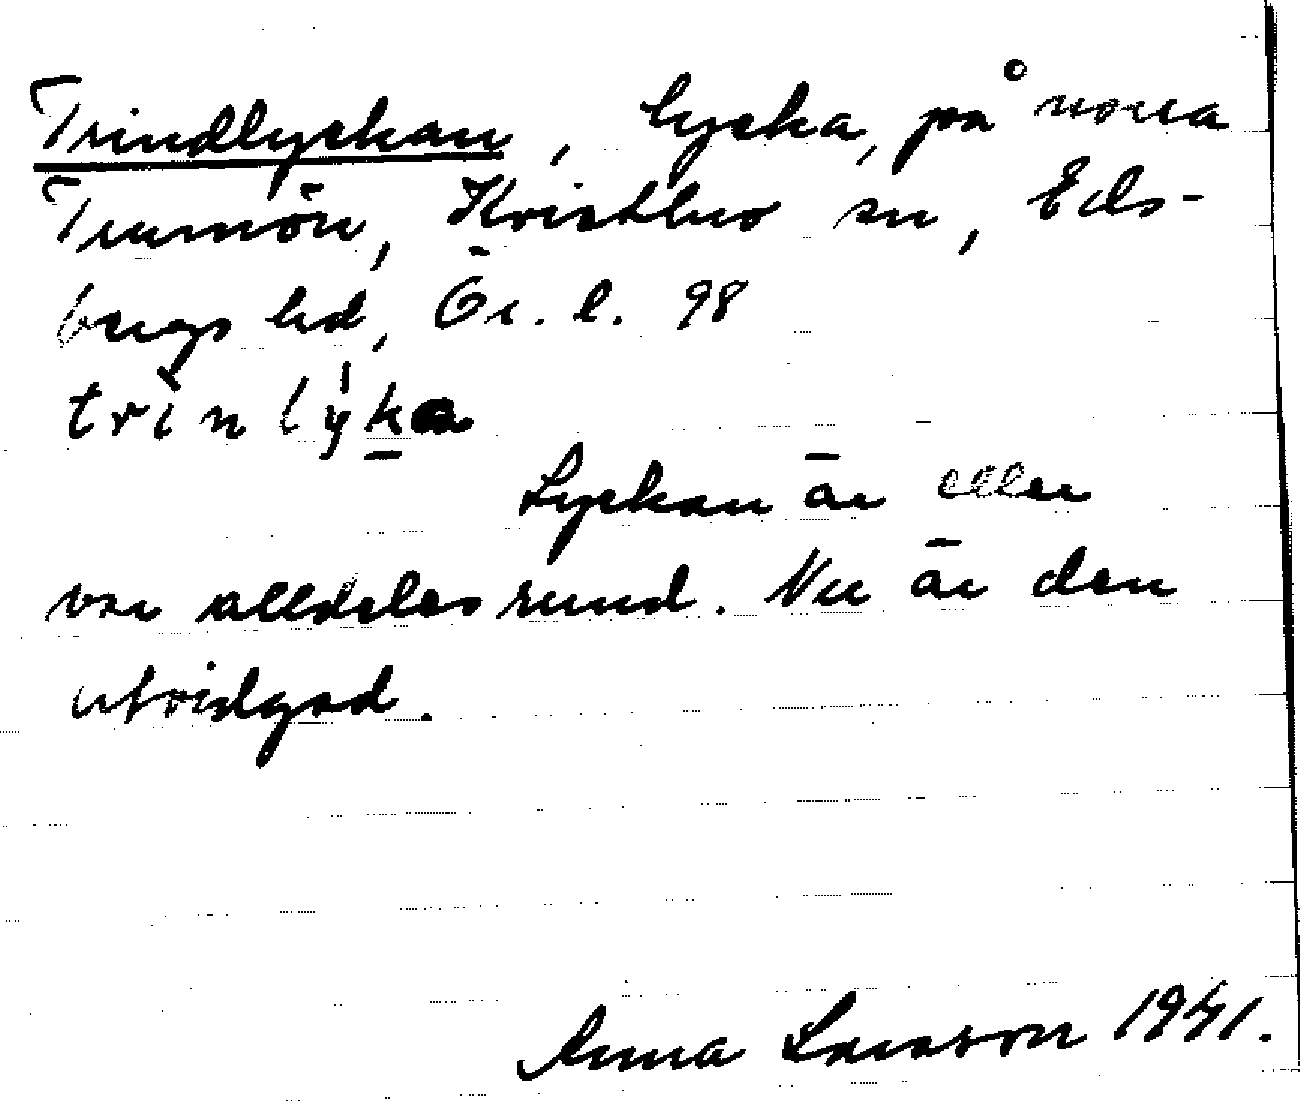 Trindlyckan, lycka, på norra
Trumön, Kvistbro sn, Eds-
bergs hd, Ör. l. 98
trìn lýka
Lyckan är eller
var alldeles rund. Nu är den
utvidgad.
Anna Larsson 1941.